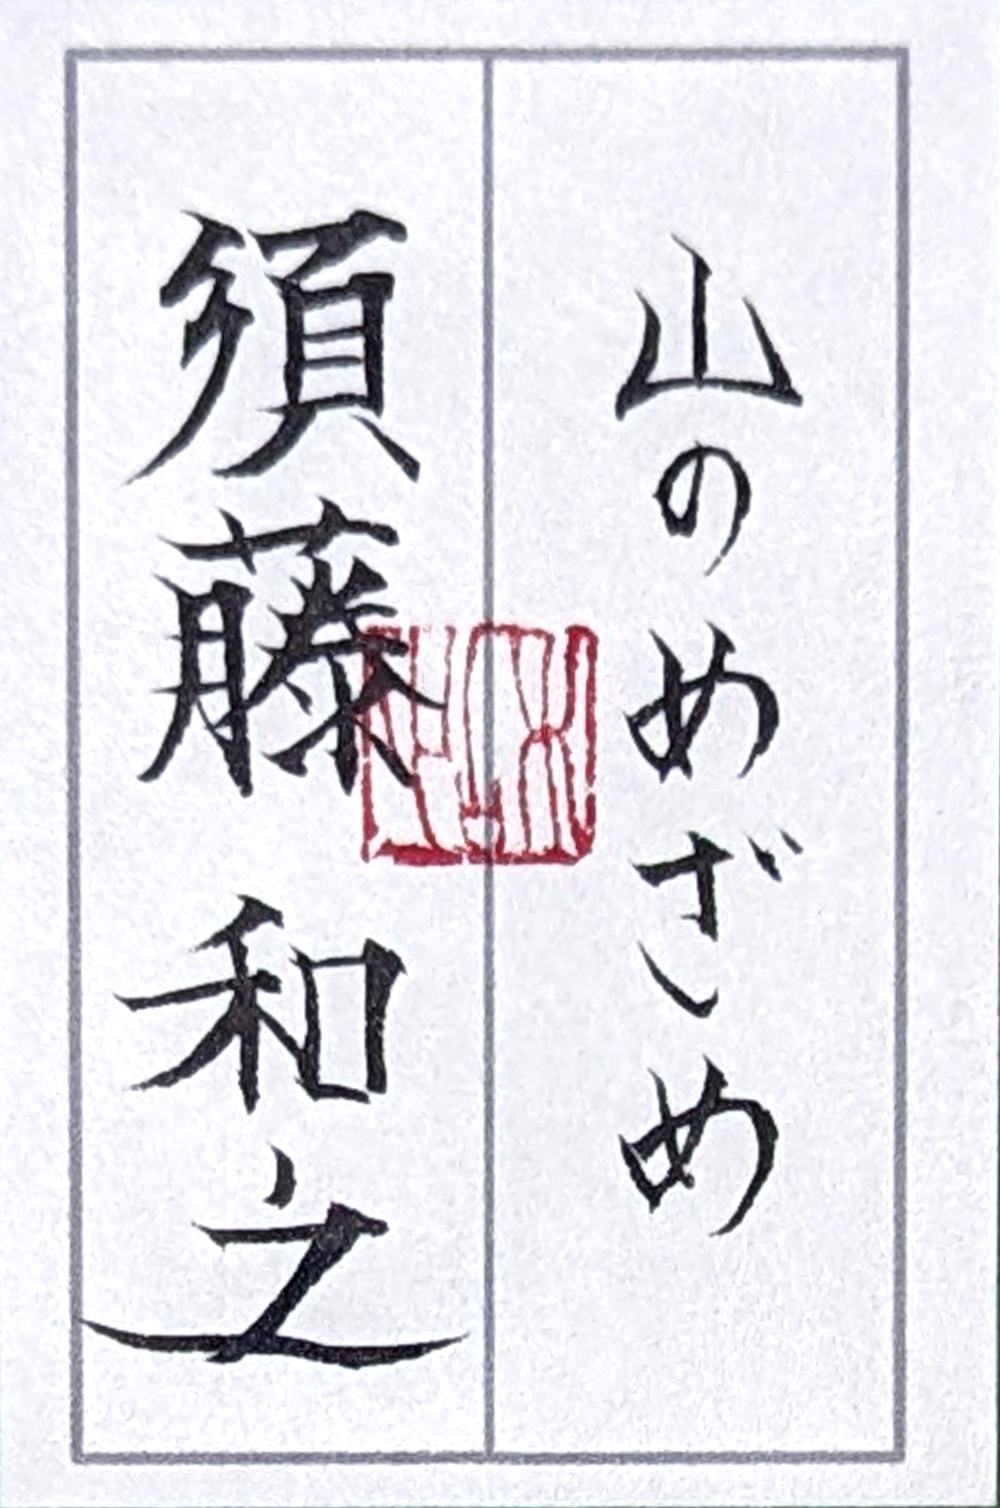 山のめざめ
須藤和之